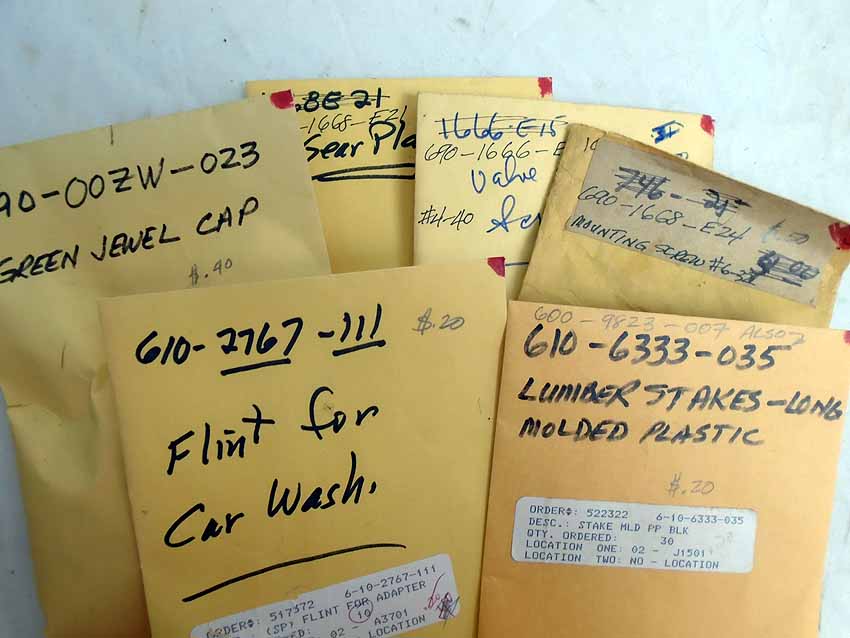 90-00ZW-023
GREEN JEWEL CAP
$.40
8E 21
-1668-E21
Gear Pla
1666-E15
690-1666-E
Valve
#4-40
690-1668-E24 $.50
MOUNTING SCREW #6-32
610-2767-111 $.20
Flint for
Car Wash.
ORDER#: 517372 6-10-2767-111
(SP) FLINT FOR ADAPTER
10
02 - A3701
- LOCATION
600-9823-007 ALSO?
610-6333-035
LUMBER STAKES-LONG
MOLDED PLASTIC
$.20
ORDER#: 522322 6-10-6333-035
DESC.: STAKE MLD PP BLK
QTY. ORDERED: 30
LOCATION ONE: 02 - J1501
LOCATION TWO: NO - LOCATION